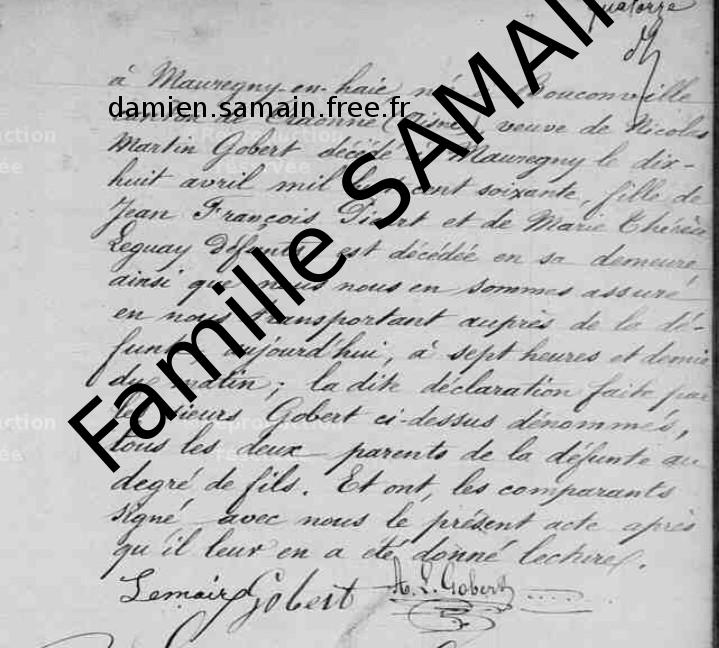 quatorze
à Mauregny-en-haie né à Bouconville
damien.samain.free.fr
(Aisne) veuve de Nicolas
Martin Gobert décédé à Mauregny le dix-
huit avril mil huit cent soixante, fille de
Jean François et de Marie Thérèse
Leguay Défunts est décédée en sa demeure
ainsi que nous nous en sommes assuré
en nous transportant auprès de la dé-
funte aujourd'hui, à sept heures et demie
du matin; la dite déclaration faite par
les sieurs Gobert ci-dessus dénommés,
tous les deux parents de la défunte au
degré de fils. Et ont, les comparants
signé avec nous le présent acte après
qu'il leur en a été donné lecture.
Lemaire Gobert A. L. Gobert
Famille SAMAIN
Reproduction